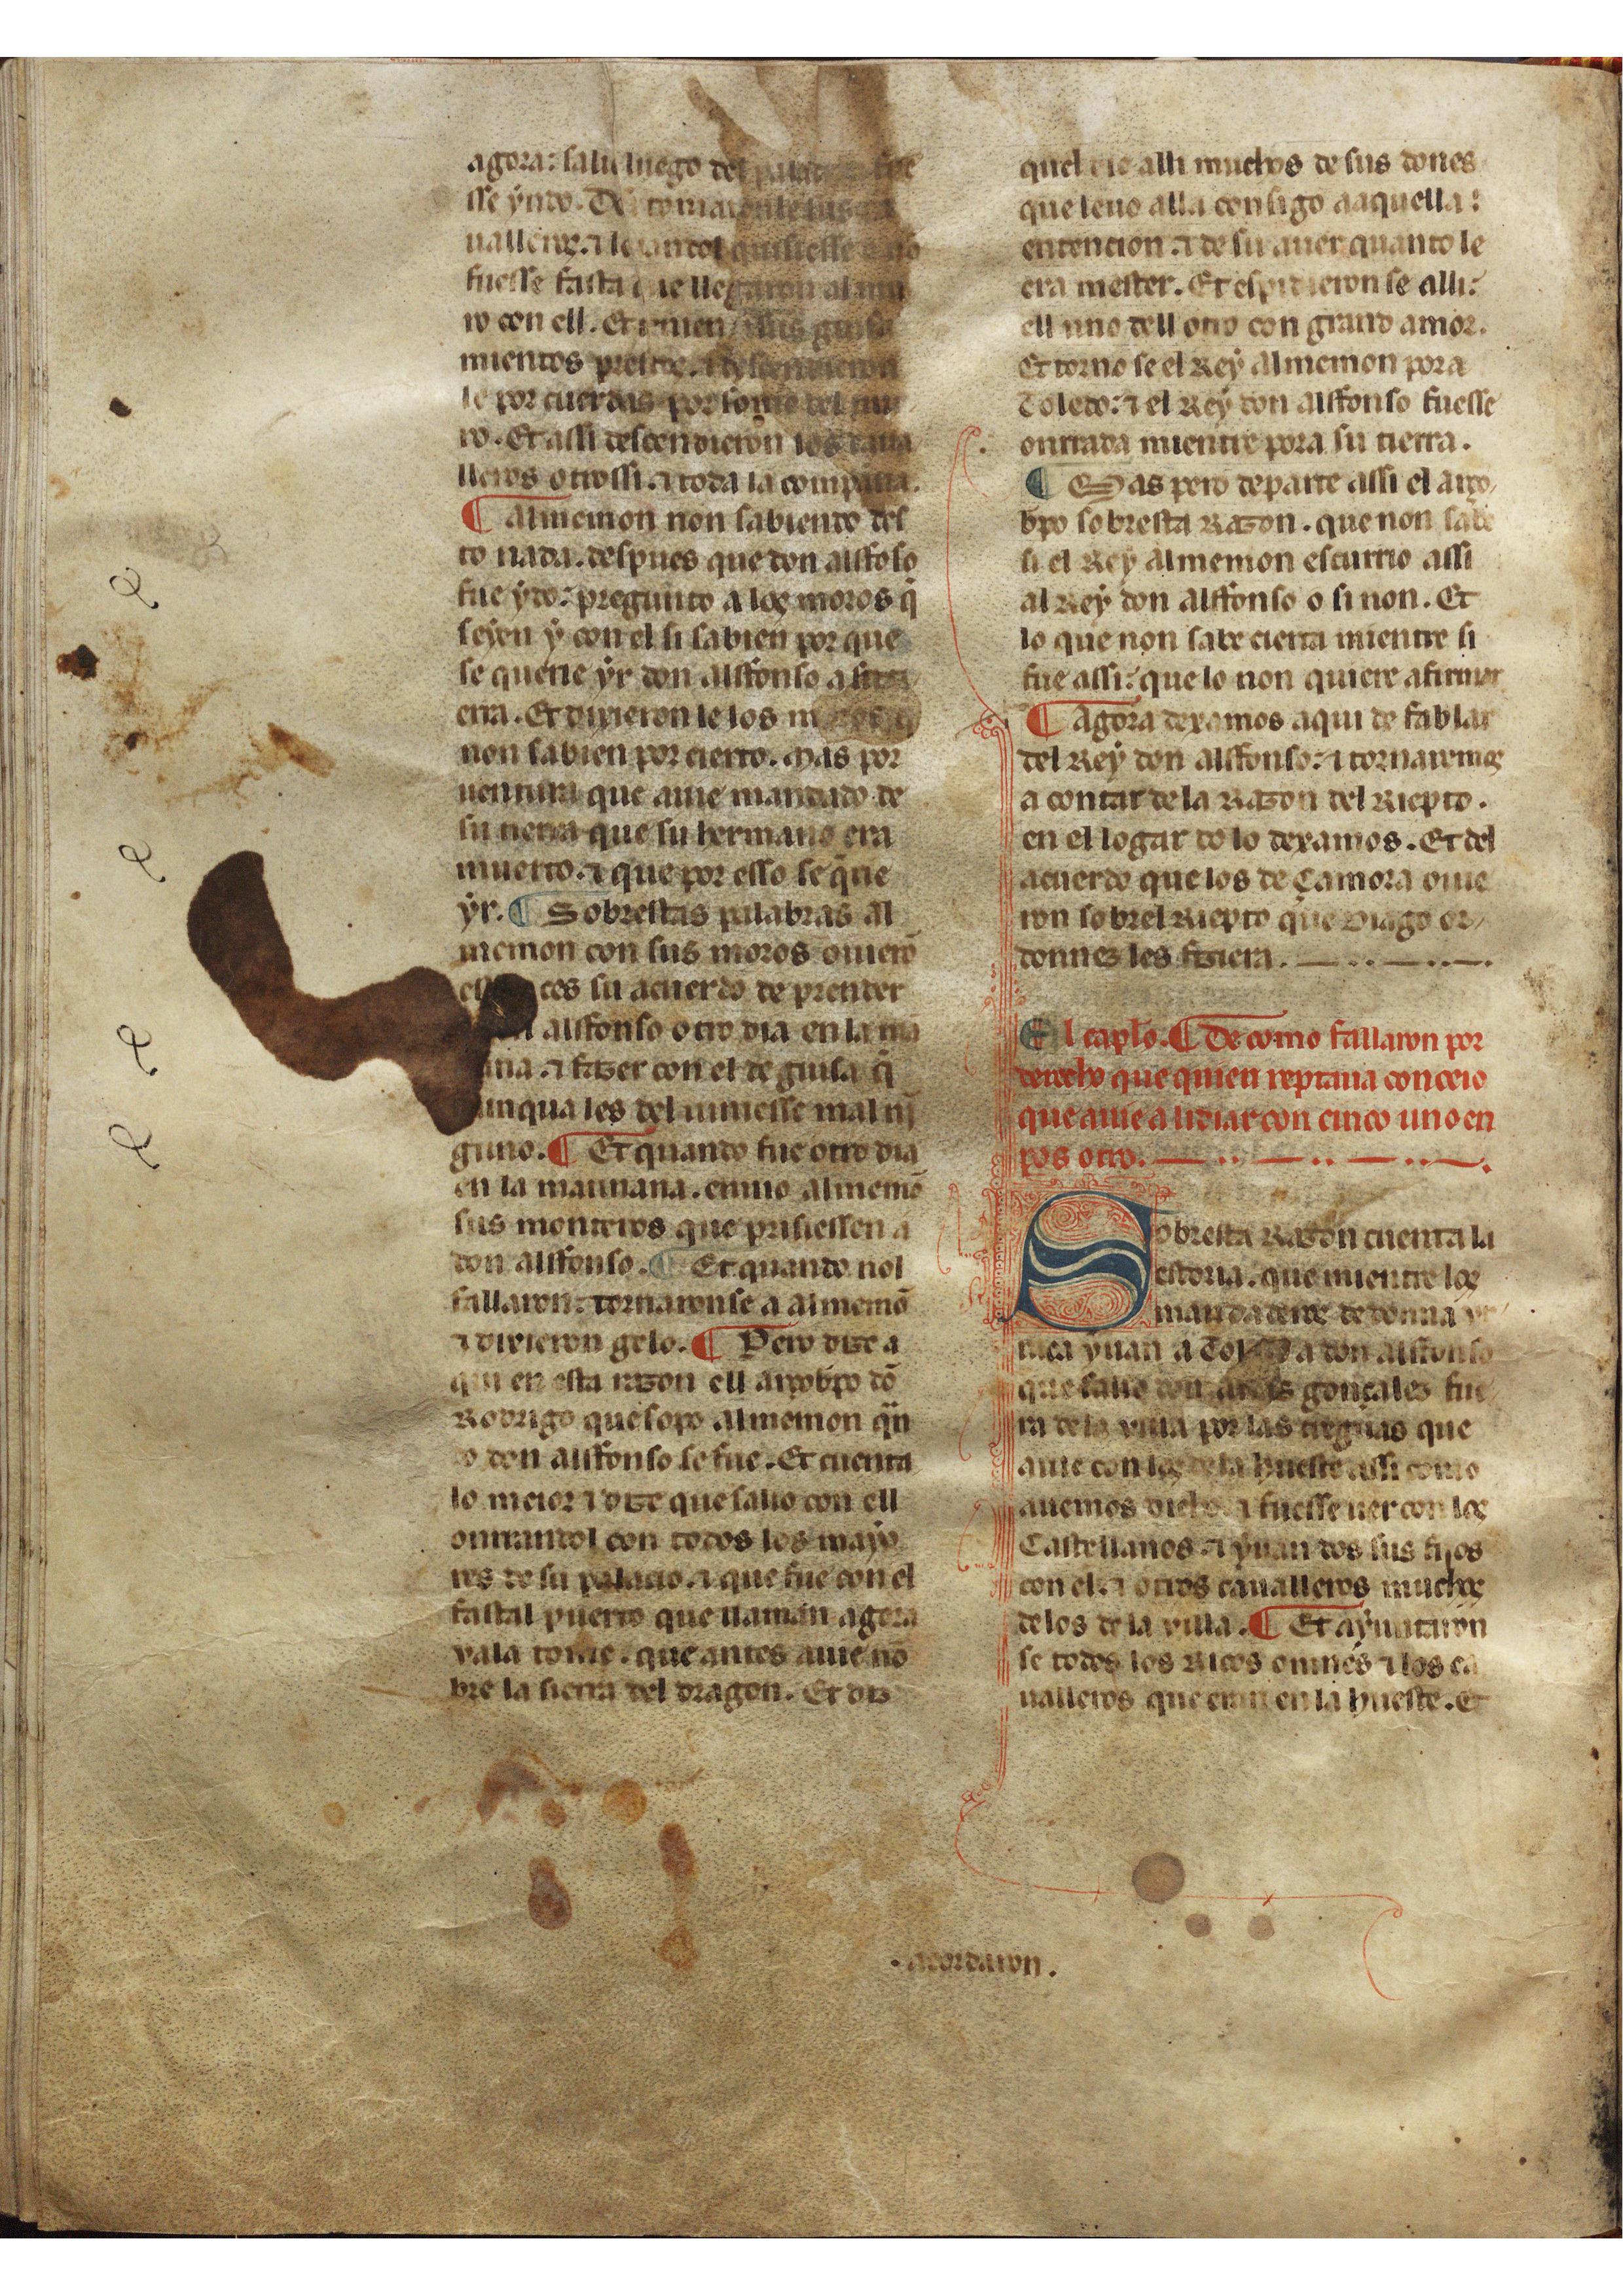 agora: salli luego del
sse yndo. Et tomaronle sus ca
ualleros. ⁊ leuantol quisiesse o no
fuesse fasta que llegaron al mu
ro con ell. Et tenien sus guisa
mientos prestos. ⁊ descendieron
le por cuerdas por somo del mu
ro. Et assi descendieron los caua
lleros otrossi. ⁊ toda la companna.
¶ Almemon non sabiendo des
to nada. despues que don alffõso
fue ydo: pregunto a los moros q̃
seyen y con el si sabien por que
se querie yr don Alffonso a su ti
erra. Et dixieron le los moros q̃
non sabien por cierto. Mas por
uentura que auie mandado de
su tierra que su hermano era
muerto. ⁊ que por esso se q̃rie
yr. ¶ Sobrestas palabras Al
memon con sus moros ouierõ
ces su acuerdo de prender
alffonso otro dia en la mã
ana. ⁊ fazer con el de guisa q̃
nunqua les del uiniesse mal nĩ
guno. ¶ Et quando fue otro dia
en la mannana. enuio Almemõ
sus monteros que prisiessen a
don alffonso. ¶ Et quando nol
fallaron: tornaronse a Almemõ
⁊ dixieron gelo. ¶ Pero dize a
qui en esta razon ell arçobpo dõ
Rodrigo que sopo Almemon q̃n
do don alffonso se fue. Et cuenta
lo meior ⁊ dize que salio con ell
onrrandol con todos los mayo
res de su palacio. ⁊ que fue con el
fastal puerto que llaman agora
vala tome. que antes auie nõ
bre la sierra del dragon. Et diz
quel dio alli muchos de sus dones
que leuo alla consigo a aquella:
entencion. ⁊ de su auer quanto le
era mester. Et espidieron se alli:
ell uno dell otro con grand amor.
Et torno se el Rey Almemon pora
Toledo: ⁊ el Rey don alffonso fuesse
onrrada mientre pora su tierra.
¶ Mas pero departe assi el arço
bpo sobresta Razon. que non sabe
si el Rey Almemon escurrio assi
al Rey don Alffonso o si non. Et
lo que non sabe cierta mientre si
fue assi: que lo non quiere afirmar
¶ Agora dexamos aqui de fablar
del Rey don Alffonso: ⁊ tornaremos
a contar de la Razon del Riepto.
en el logar do lo dexamos. Et del
acuerdo que los de Çamora ouie
ron sobrel Riepto que Diago or
donnez les fiziera.
El caplo. ¶ De como fallaron por
derecho que quien reptaua conceio
que auie a lidiar con cinco uno en
pos otro.
Sobresta Razon cuenta la
estoria. que mientre los
mandaderos de donna vr
raca yuan a Toledo a don alffonso
que salio don arias gonçalez fue
ra de la villa por las treguas que
auie con los de la hueste assi como
auemos dicho. ⁊ fuesse uer con los
Castellanos. ⁊ yuan dos sus fijos
con el. ⁊ otros caualleros muchos
de los de la villa. ¶ Et ayuntaron
se todos los Ricos omnes ⁊ los ca
ualleros que eran en la hueste. Et
. acordaron.